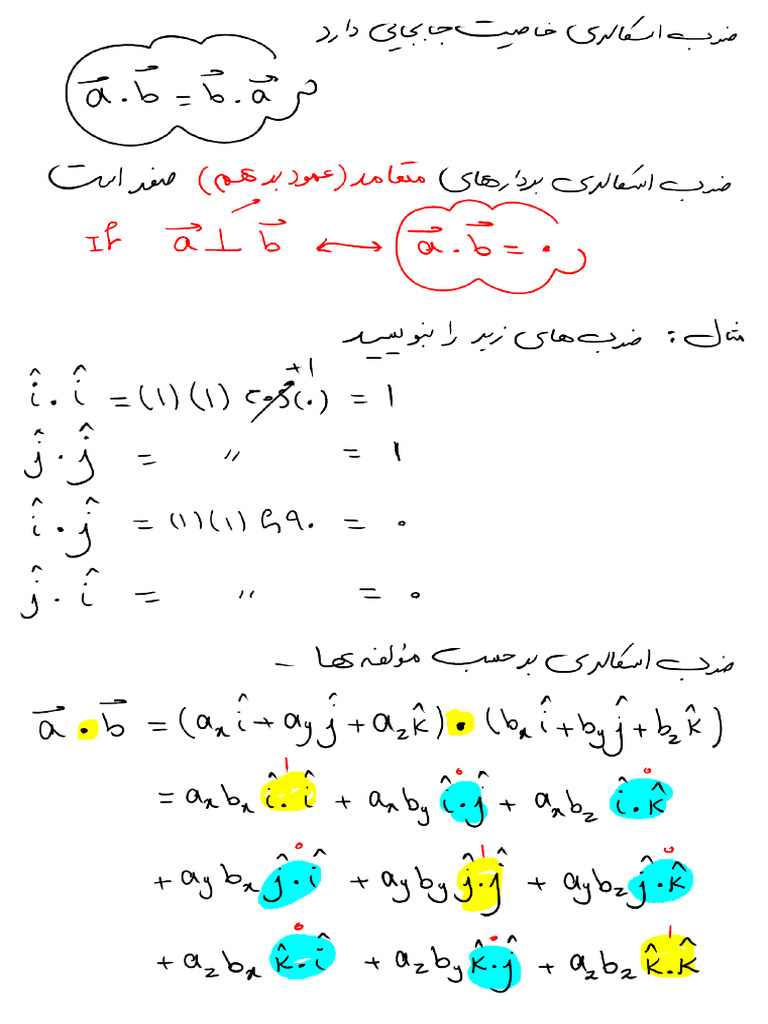 ضرب اسکالری خاصیت جابجایی دارد
a⃗ . b⃗ = b⃗ . a⃗
ضرب اسکالری بردارهای متعامد (عمود بر هم) صفر است
If a⃗ ⊥ b⃗ ↔ a⃗ . b⃗ = ۰
مثال : ضرب های زیر را بنویسید
î . î = (1)(1) cos(۰) = 1 +1
ĵ . ĵ = 〃 = 1
î . ĵ = (1)(1) ۹۰ = ۰
ĵ . î = 〃 = ۰
ضرب اسکالری بر حسب مؤلفه ها –
a⃗ . b⃗ = (aₓ î + a_y ĵ + a_z k̂) . (bₓ î + b_y ĵ + b_z k̂)
= aₓ bₓ î . î 1 + aₓ b_y î . ĵ 0 + aₓ b_z î . k̂ 0
+ a_y bₓ ĵ . î 0 + a_y b_y ĵ . ĵ 1 + a_y b_z ĵ . k̂ 0
+ a_z bₓ k̂ . î 0 + a_z b_y k̂ . ĵ ۰ + a_z b_z k̂ . k̂ 1